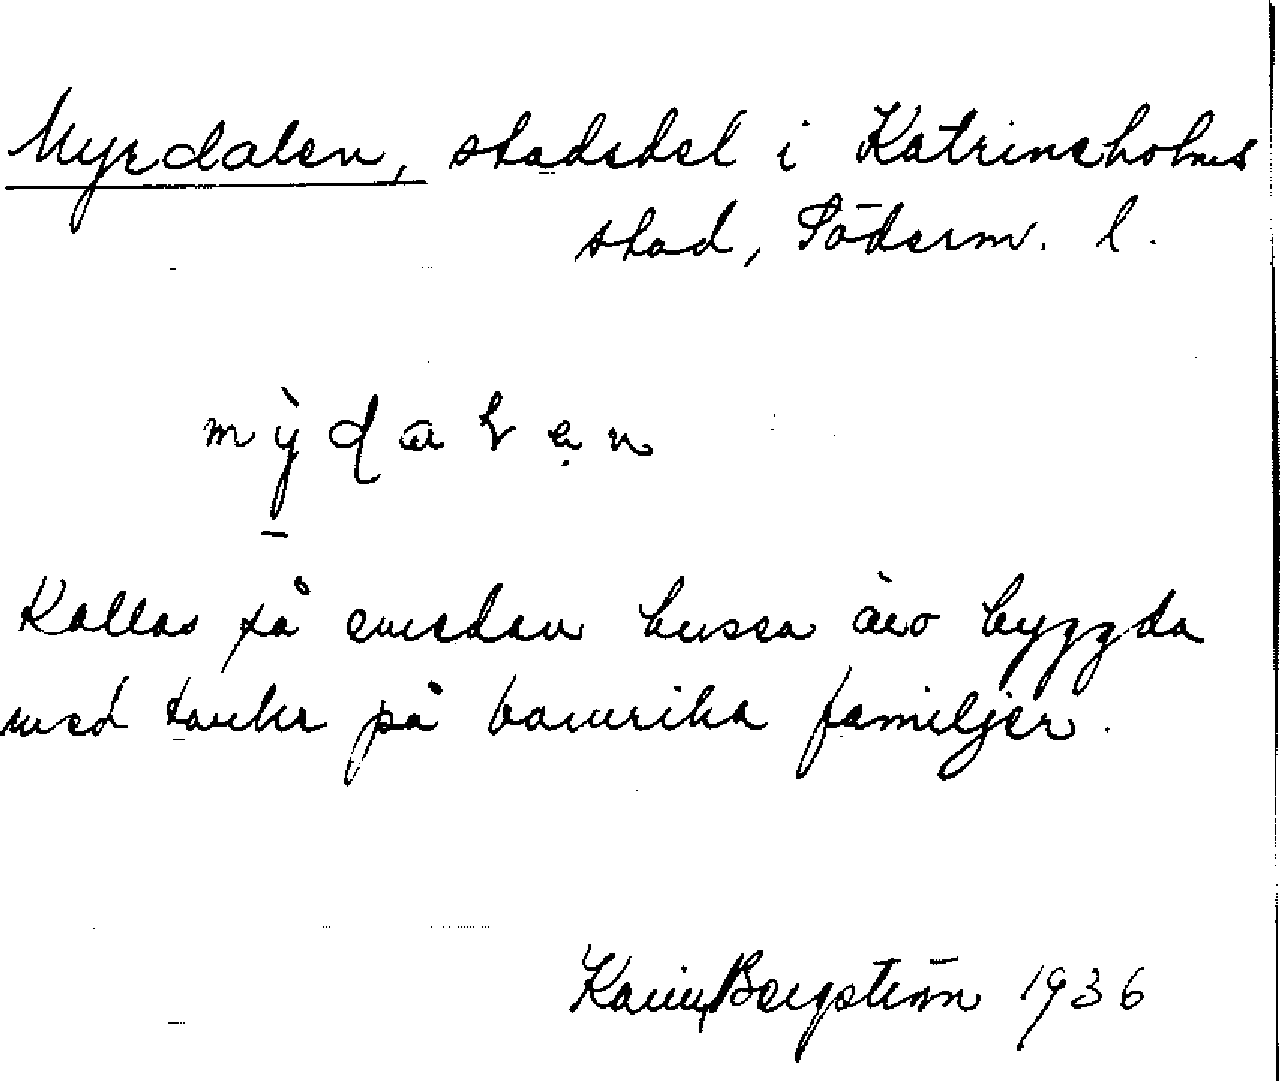 Myrdalen, stadsdel i Katrineholms
stad, Söderm. l.
Kallas så emedan husen äro byggda
med tanke på barnrika familjer.
Karin Bergström 1936